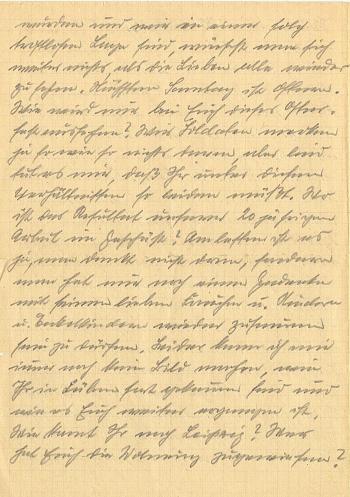 wurden und wir in einer solch
trostlosen Lage sind, wünscht man sich
weiter nichts, als die Lieben alle wieder
zu sehen. Nächsten Sonntag ist Ostern.
Wie wird nur bei Euch dieses Oster-
fest aussehen? Wir Soldaten merken
ja so wie so nichts davon aber leid
tut es mir, daß Ihr unter diesen
Verhältnissen so leiden müßt. Wo
ist das Resultat unserer 20 jährigen
Arbeit im Geschäft? Am besten ist es
ja, man denkt nicht daran, sondern
man hat nur noch einen Gedanken
mit seinen lieben u. Kindern
u. Enkelkindern wieder zusammen
sein zu dürfen. Leider kann ich mir
immer noch kein Bild machen, wie
Ihr in fort gekommen seid und
wie es Euch weiter ergangen ist.
Wie kamt Ihr nach Leipzig? Wer
hat Euch die Wohnung zugewiesen?